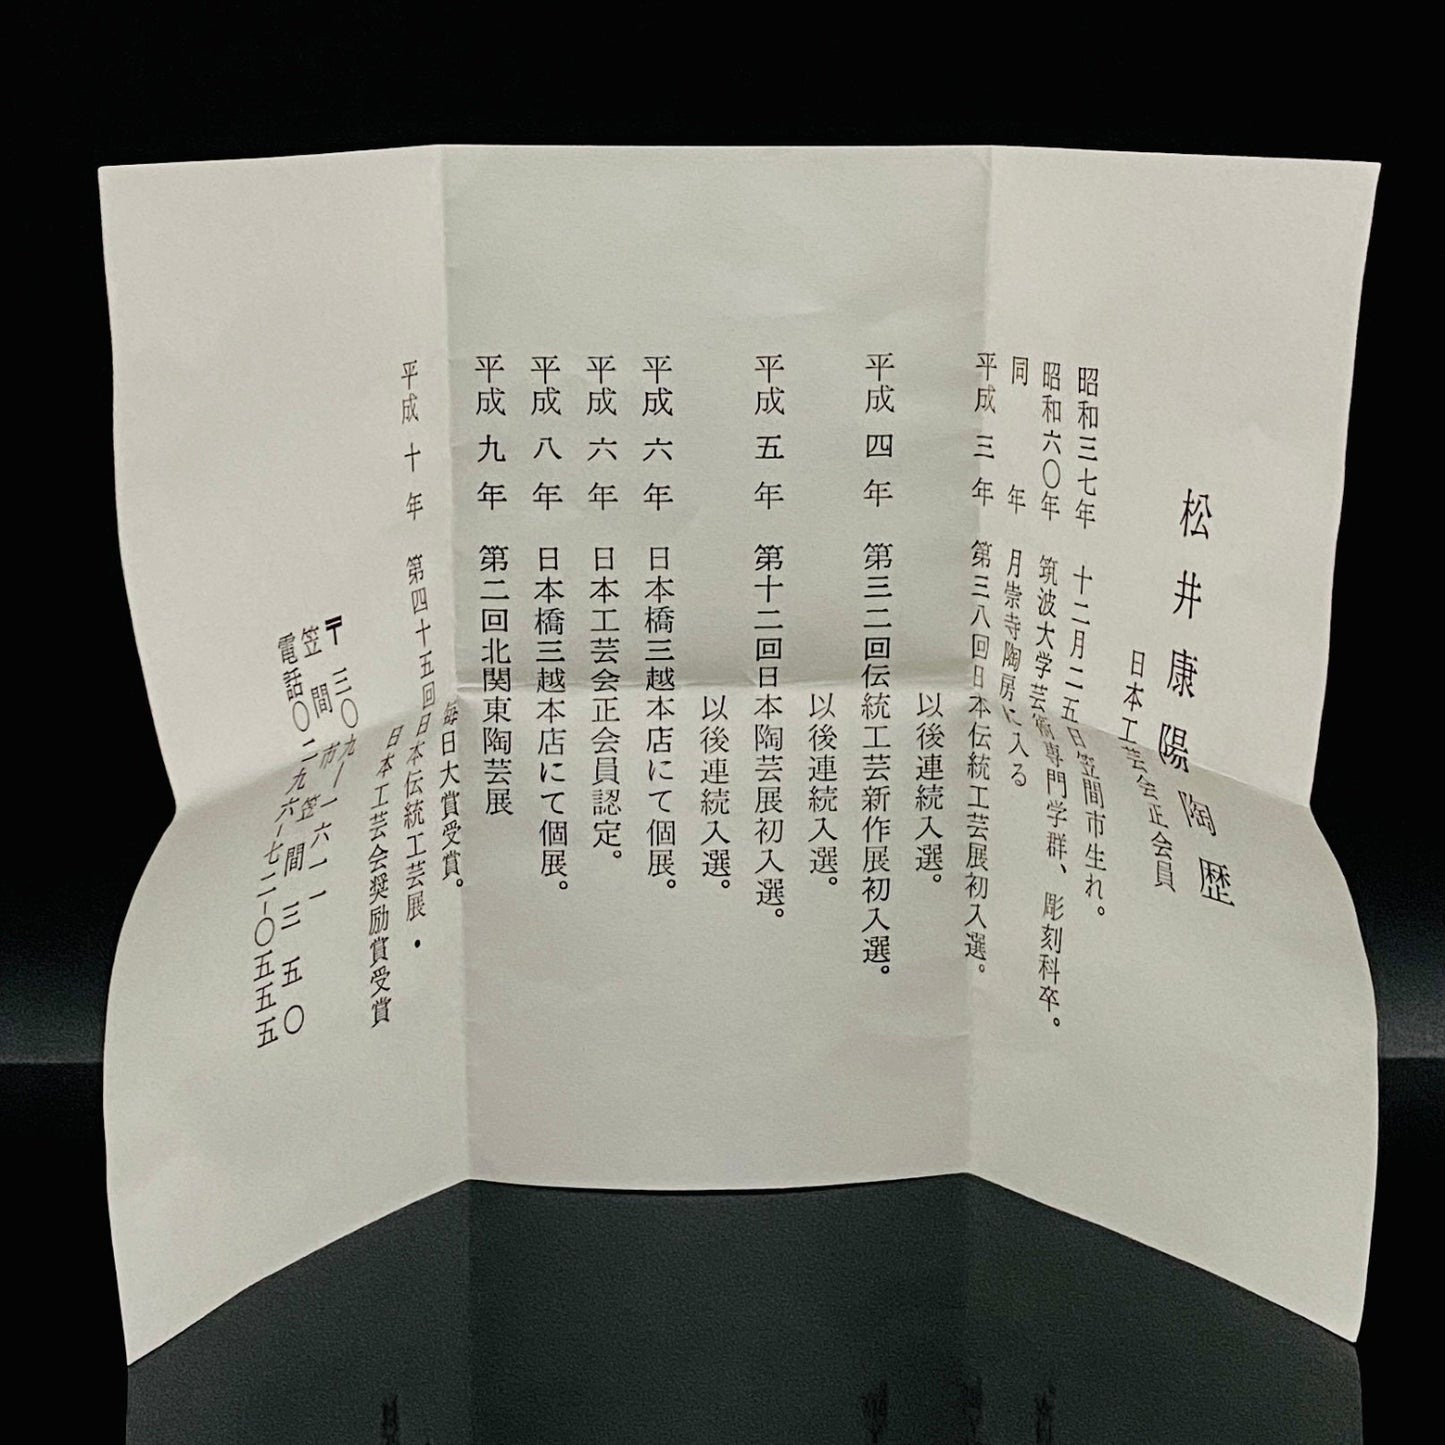 松井康陽陶歴
日本工芸会正会員
昭和三七年 十二月二五日笠間市生れ。
昭和六〇年 筑波大学芸術専門学群、彫刻科卒。
同 年 月崇寺陶房に入る
平成三年 第三八回日本伝統工芸展初入選。
以後連続入選。
平成四年 第三二回伝統工芸新作展初入選。
以後連続入選。
平成五年 第十二回日本陶芸展初入選。
以後連続入選。
平成六年 日本橋三越本店にて個展。
平成六年 日本工芸会正会員認定。
平成八年 日本橋三越本店にて個展。
平成九年 第二回北関東陶芸展
毎日大賞受賞。
平成十年 第四十五回日本伝統工芸展・
日本工芸会奨励賞受賞
〒三〇九ー一六一一
笠間市笠間三五〇
電話〇二九六ー七二ー〇五五五